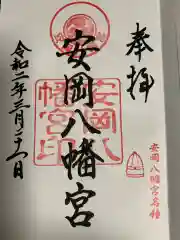 奉拝
安岡八幡宮
安岡八幡宮印
令和二年三月二十一日
安岡八幡宮名鐘